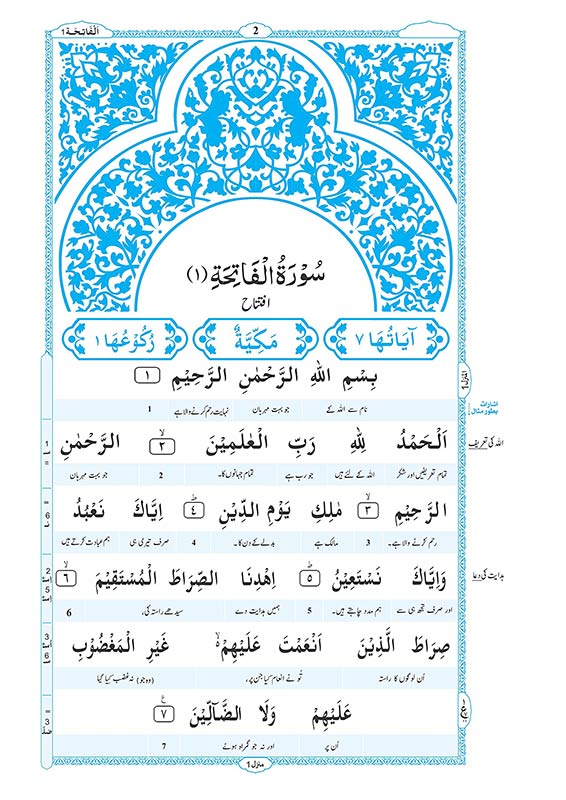 اَلْفَاتِحَة ١
2
سُوْرَةُ الْفَاتِحَةِ (١)
افتتاح
اٰيَاتُهَا ٧
مَكِّيَّةٌ
رُكُوْعُهَا ١
بِسْمِ اللهِ الرَّحْمٰنِ الرَّحِيْمِ ١
نام سے اللہ کے جو بہت مہربان نہایت رحم کرنے والا ہے 1
اَلْحَمْدُ لِلّٰهِ رَبِّ الْعٰلَمِيْنَ ۙ ٢ الرَّحْمٰنِ
تمام تعریفیں اور شکر اللہ کے لئے ہیں جو رب ہے تمام جہانوں کا۔ 2 جو بہت مہربان
الرَّحِيْمِ ۙ ٣ مٰلِكِ يَوْمِ الدِّيْنِ ؕ ٤ اِيَّاكَ نَعْبُدُ
رحم کرنے والا ہے۔ 3 مالک ہے بدلے کے دن کا۔ 4 صرف تیری ہی ہم عبادت کرتے ہیں
وَاِيَّاكَ نَسْتَعِيْنُ ؕ ٥ اِهْدِنَا الصِّرَاطَ الْمُسْتَقِيْمَ ۙ ٦
اور صرف تجھ ہی سے ہم مدد چاہتے ہیں۔ 5 ہمیں ہدایت دے سیدھے راستہ کی، 6
صِرَاطَ الَّذِيْنَ اَنْعَمْتَ عَلَيْهِمْ ۙ غَيْرِ الْمَغْضُوْبِ
اُن لوگوں کا راستہ تُو نے انعام کیا جن پر، (وہ جو) نہ غضب کیا گیا
عَلَيْهِمْ وَلَا الضَّآلِّيْنَ ۧ ٧
اُن پر اور نہ جو گمراہ ہوئے 7
منزل 1
المنزل 1
اشارات
بطور مثال
اللہ کی تعریف
ہدایت کی دعا